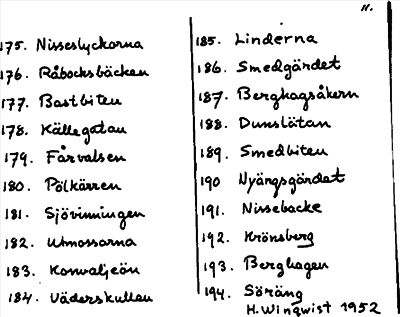 11.
175. Nisseslyckorna
176. Råbocksbäcken
177. Bastbiten
178. Källegatan
179. Fårvalsen
180. Pölkärren
181. Sjövinningen
182. Utmossarna
183. Konvaljeön
184. Väderskullen
185. Linderna
186. Smedgärdet
187. Berghagsåkern
188. Dunslätan
189. Smedbiten
190 Nyängsgärdet
191. Nissebacke
192. Krönsberg
193. Berghagen
194. Söräng
H. Winqwist 1952